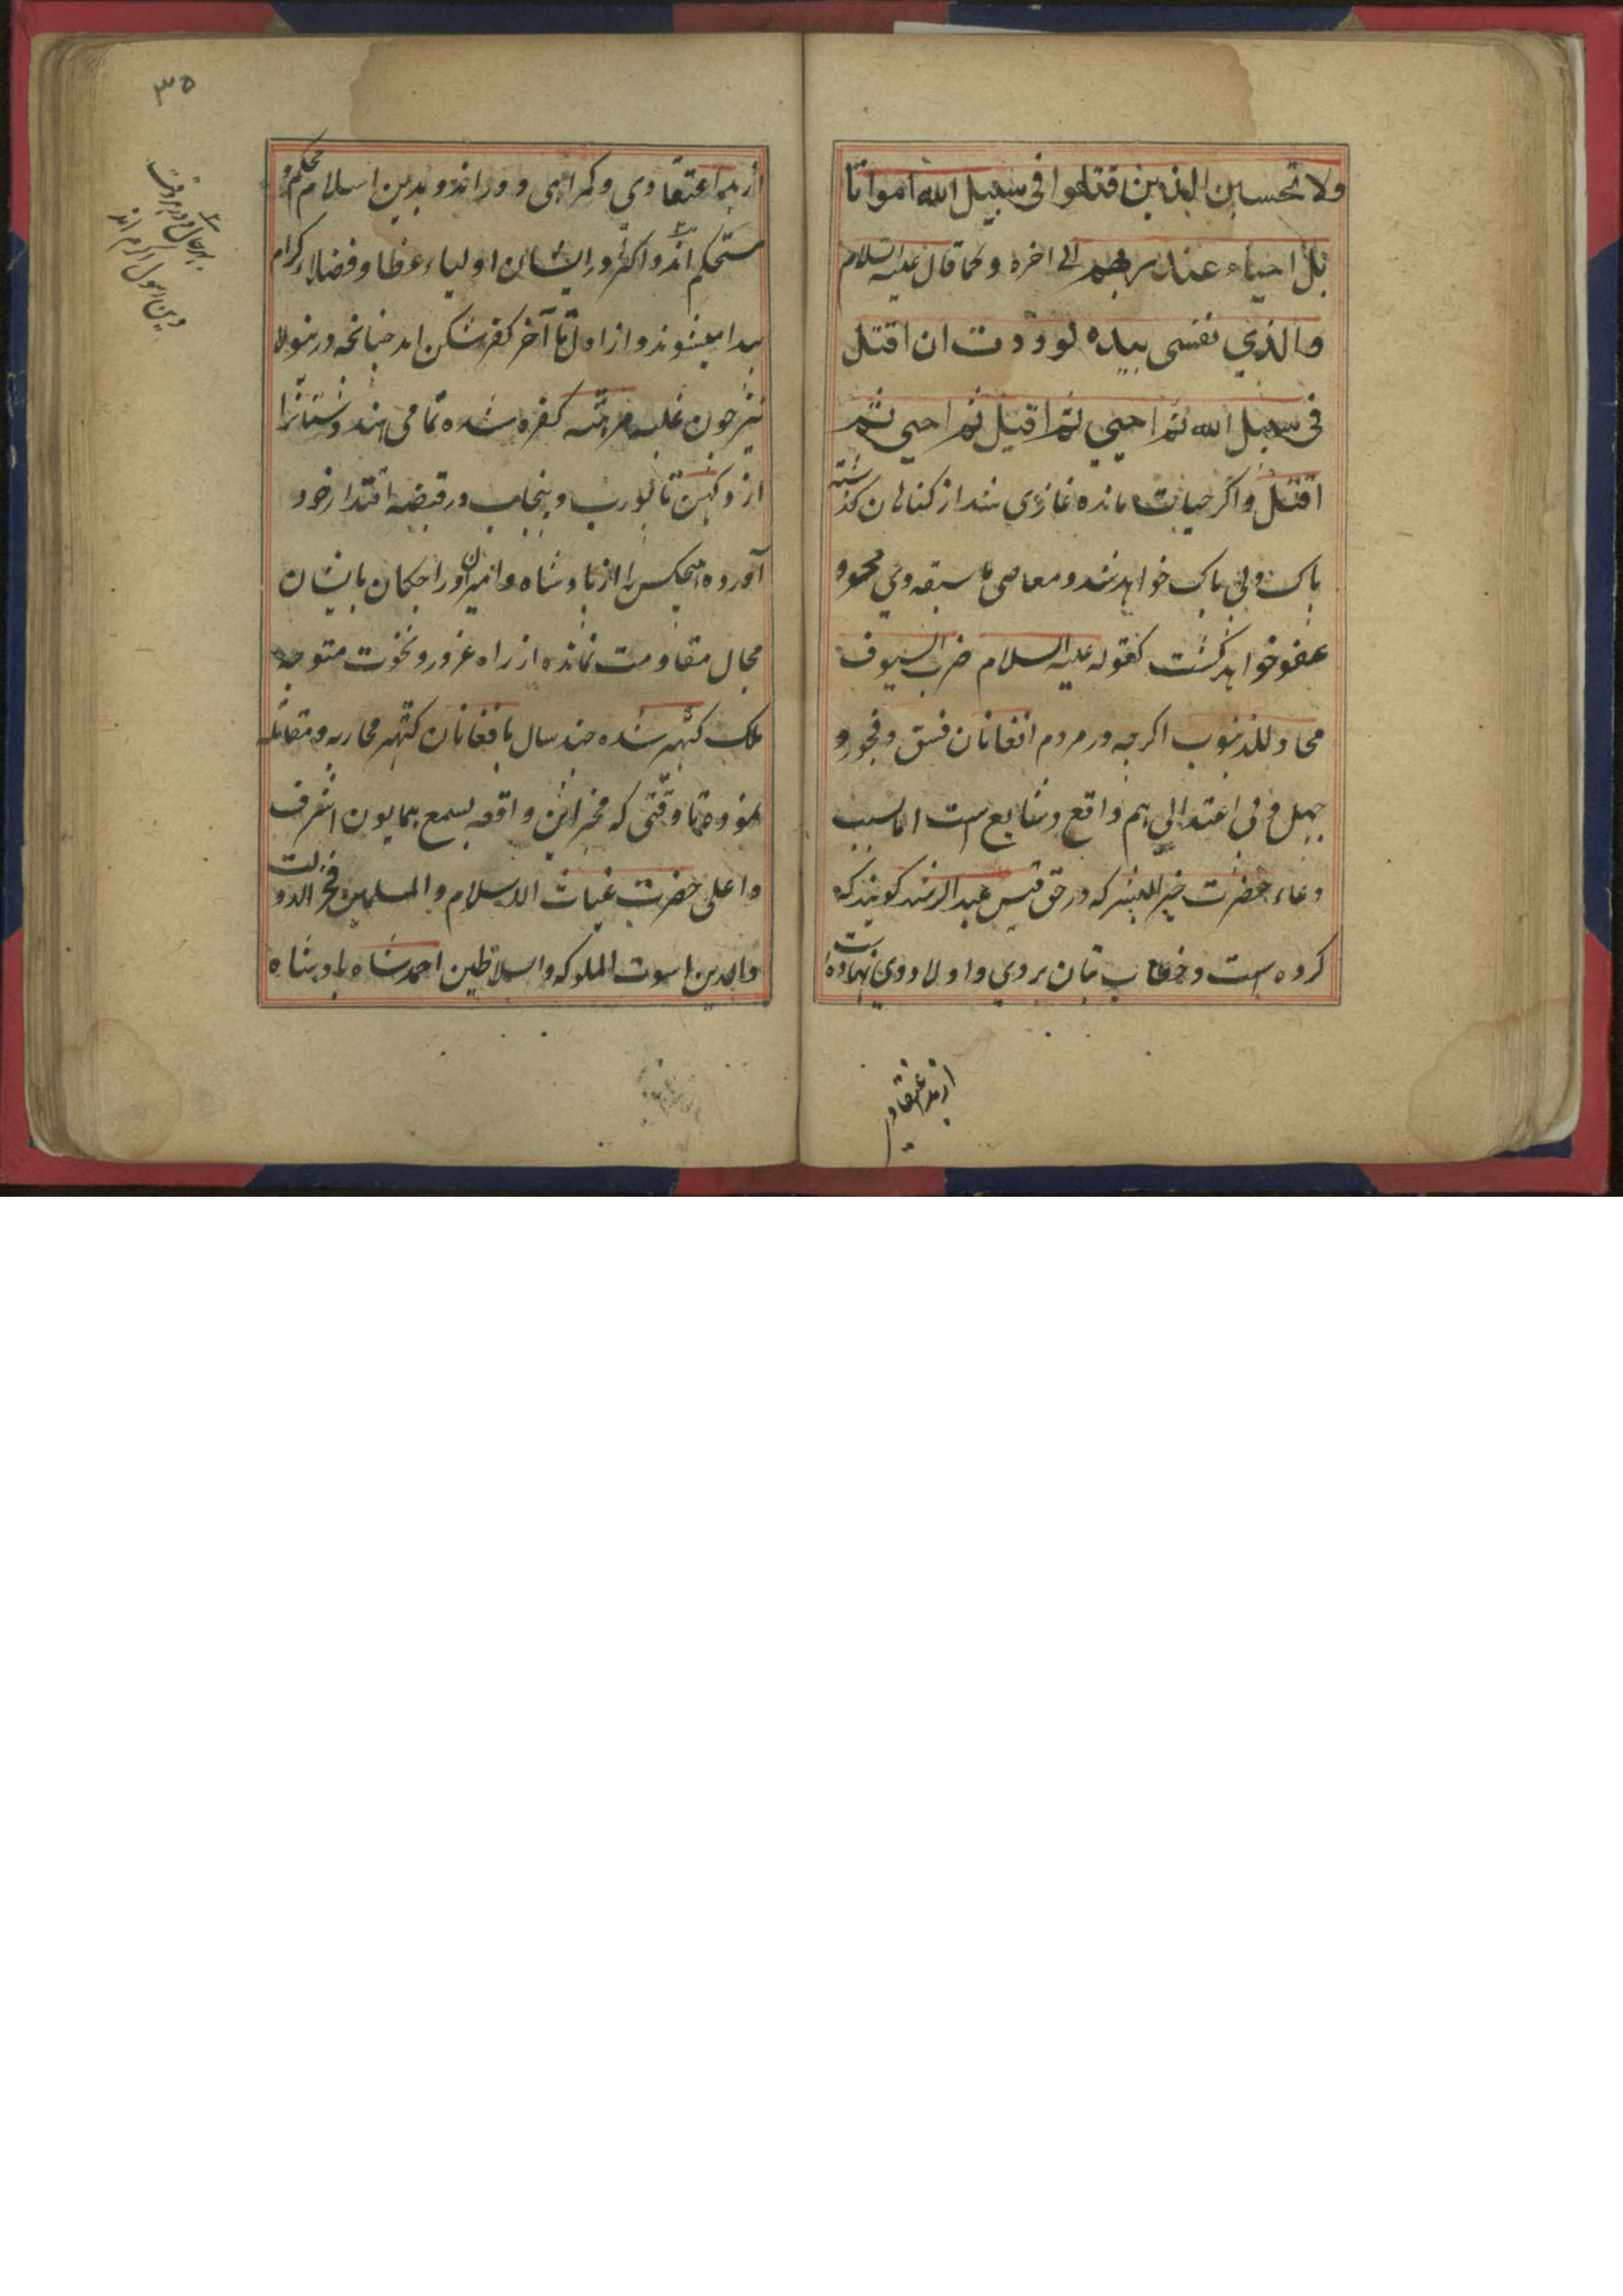 ولا تحسبن الذین قتلوا فی سبیل الله امواتا
بل احیاء عند ربهم الی اخره و کما قال علیه السلام
والذي نفسی بیده لوددت ان اقتل
فی سبیل الله ثم احیی ثم اقتل ثم احیی ثم
اقتل و اکر حیات مانده غازی شد از کناهان کذشته
پاک و بی باک خواهد شد و معاصی ما سبقه وي محو و
عفو خواهد کشت کقوله علیه السلام ضرب السیوف
محاء للذنوب اکرچه در مردم افغانان فسق و فجور و
جهل و بی اعتدالی هم واقع و شایع است اما بسبب
دعاء حضرت خیر البشر که در حق قیس عبد الرشید کویند که
کرده است و خطاب تبان بر وي و اولاد وي نهاده است
از بد اعتقادی
۳۵
از بد اعتقادي و کمراهی دوراند و بدین اسلام محکم و
مستحکم اند و اکثر در ایشان اولیاء عظام و فضلاء کرام
پیدا میشوند و از اول تا آخر کفر شکن اند چنانچه درینولا
نیز چون غلبه مرهته کفره شده تمامی هندوستانرا
از دکهن تا پورب و پنجاب در قبضه اقتدار خود
آورده هیچکس را از پادشاه و امیران و راجکان با ایشان
مجال مقاومت نمانده از راه غرور و نخوت متوجه
ملک کتهر شده چند سال با افغانان کتهر محاربه و مقاتله
نموده تا وقتی که مخبر این واقعه بسمع همایون اشرف
و اعلی حضرت غیاث الاسلام و المسلمین فخر الدولت
والدین اسوت الملوک و السلاطین احمد شاه پادشاه